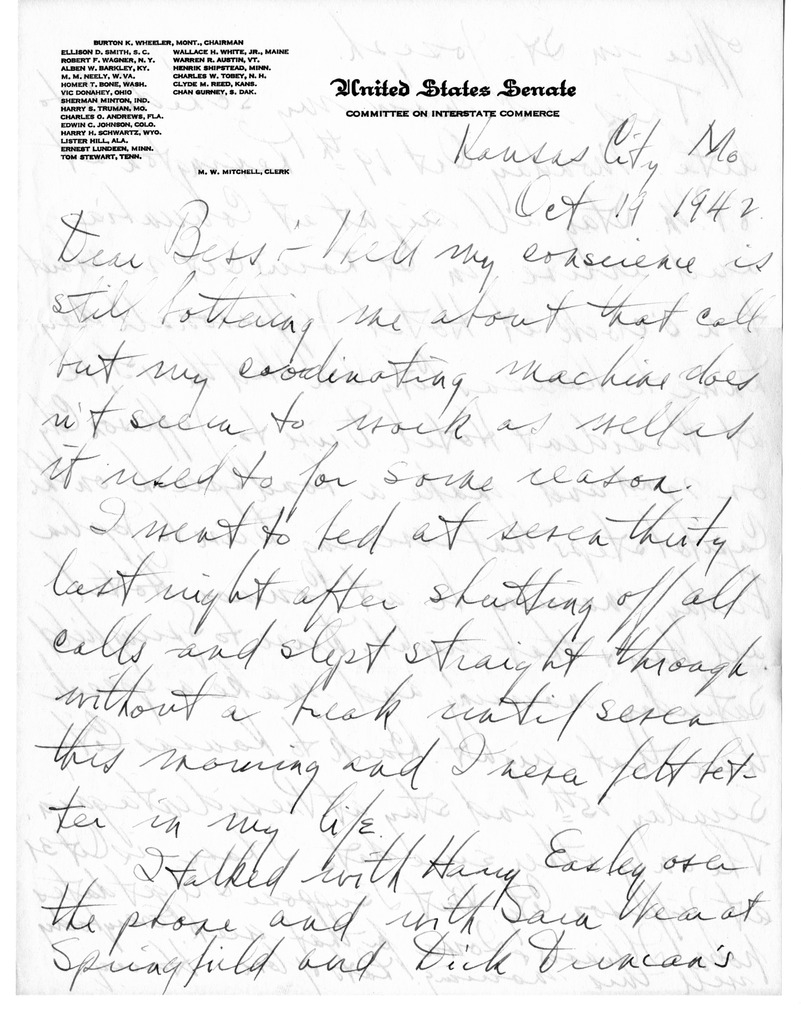 BURTON K. WHEELER, MONT., CHAIRMAN
ELLISON D. SMITH, S. C.
ROBERT F. WAGNER, N. Y.
ALBEN W. BARKLEY, KY.
M. M. NEELY, W. VA.
HOMER T. BONE, WASH.
VIC DONAHEY, OHIO
SHERMAN MINTON, IND.
HARRY S. TRUMAN, MO.
CHARLES O. ANDREWS, FLA.
EDWIN C. JOHNSON, COLO.
HARRY H. SCHWARTZ, WYO.
LISTER HILL, ALA.
ERNEST LUNDEEN, MINN.
TOM STEWART, TENN.
WALLACE H. WHITE, JR., MAINE
WARREN R. AUSTIN, VT.
HENRIK SHIPSTEAD, MINN.
CHARLES W. TOBEY, N. H.
CLYDE M. REED, KANS.
CHAN GURNEY, S. DAK.
M. W. MITCHELL, CLERK
United States Senate
COMMITTEE ON INTERSTATE COMMERCE
Kansas City Mo
Oct 19 1942.
Dear Bess:- Well my conscience is
still bothering me about that call
but my coodinating machine does
n't seem to work as well as
it used to for some reason.
I went to bed at seven thirty
last night after shutting off all
calls and slept straight through
without a break until seven
this morning and I never felt bet-
ter in my life.
I talked with Harry Easley over
the phone and with Sam Wear at
Springfield and Dick Duncan's